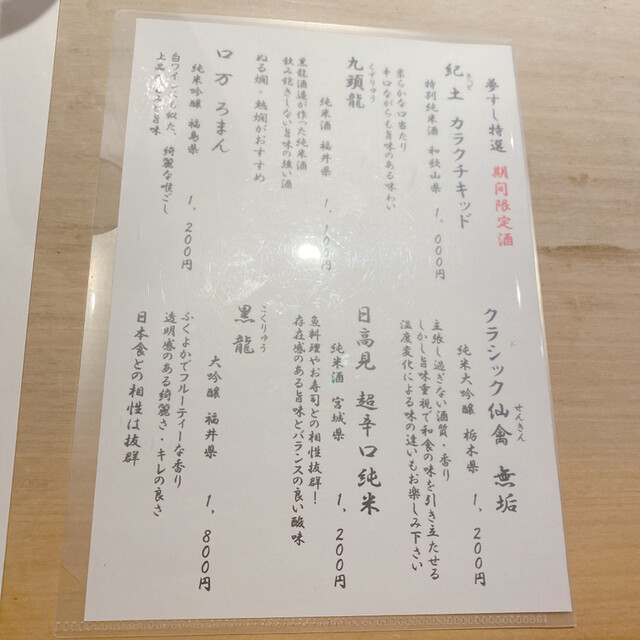 夢すし特選 期间限定酒
紀土 カラクチキッド
きっど
特別純米酒 和歌山県 1,000円
柔らかな口当たり
辛口ながらも旨味のある味わい
九頭龍
くずりゅう
純米酒 福井県 1,100円
黒龍酒造が作った純米酒
飲み飽きしない旨味の強い酒
ぬる燗・熱燗がおすすめ
口万 ろまん
純米吟醸 福島県 1,200円
白ワインにも似た、綺麗な喉ごし
上品な旨味
クラシック 仙禽 無垢
せんきん
純米大吟醸 栃木県 1,200円
主張し過ぎない酒質・香り
しかし旨味重視で和食の味を引き立たせる
温度変化による味の違いもお楽しみ下さい
日高見 超辛口純米
純米酒 宮城県 1,200円
魚料理やお寿司との相性抜群!
存在感のある旨味とバランスの良い酸味
黒龍
こくりゅう
大吟醸 福井県 1,800円
ふくよかでフルーティーな香り
透明感のある綺麗さ・キレの良さ
日本食との相性は抜群